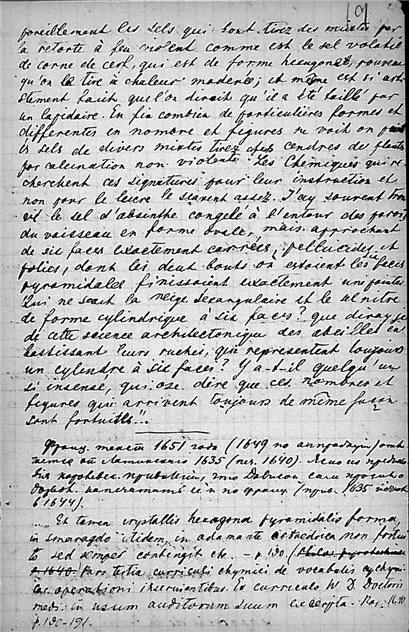 19
pareillement les sels qui sont tirez des mixtes par
la retorte à feu violent comme est le sel volatil
de corne de cerf, qui est de forme hexagone, pourveu
qu'on le tire à chaleur moderée; et même est si artis
tement taillé, que l'on diroit qu'il a été taillé par
un lapidaire. En fin combien de particulières formes et
differentes en nombre et figures ne voit on pas
es sels de divers mixtes tirez des cendres de plantes
par calcination non violente. Les Chemiques qui re
cherchent ces signatures pour leur instruction et
non pour le lucre le scavent assez. J'ay souvent trou
vé le sel d'absinthe congelé à l'entour des parois
du vaisseau en forme ovale, mais approchant
de six faces exactement carrées, pellucides et
polies, dont les deux bouts où estoient les faces
pyramidales finissoient exactement une pointe
Qui ne scait la neige sexangulaire et le sel nitre
de forme cylindrique à six faces? que diray je
de cette science architectonique des abeilles en
bastissant leurs ruches, qui representent toujours
un cylindre à six faces? Y a-t-il quelqu'un
si insensé, qui ose dire que ces nombres et
figures qui arrivent toujours de même façon
sont fortuites"..
1651 года (1649 по
1635 (лат. 1640).
франц. 1635
1644).
„Et tamen crystallis hexagona pyramidalis forma,
in smaragdo itidem, in adamante octaedrica non fortui
to sed semper contingit etc. – p. 120.
p 1640 Pars tertia curriculi chymici de vocabulis et chymi
cis operationi inservientibus. Ex curriculo W. D. Doctoris
medi. in usum auditorum suum excerpta. Par. 1640
p. 120-191.